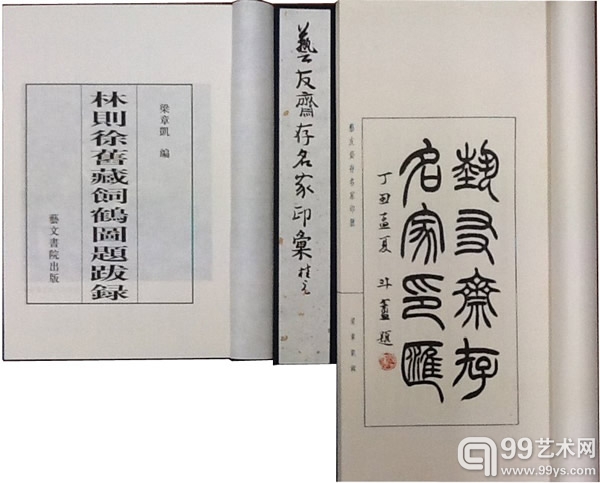 梁章凱 編
林則徐舊藏飼鶴圖題跋録
藝文書院出版
藝友齋存名家印彙
藝友齋存
名家印匯
丁丑孟夏
題
藝友齋存名家印匯
梁章凱輯
99艺术网
www.99ys.com